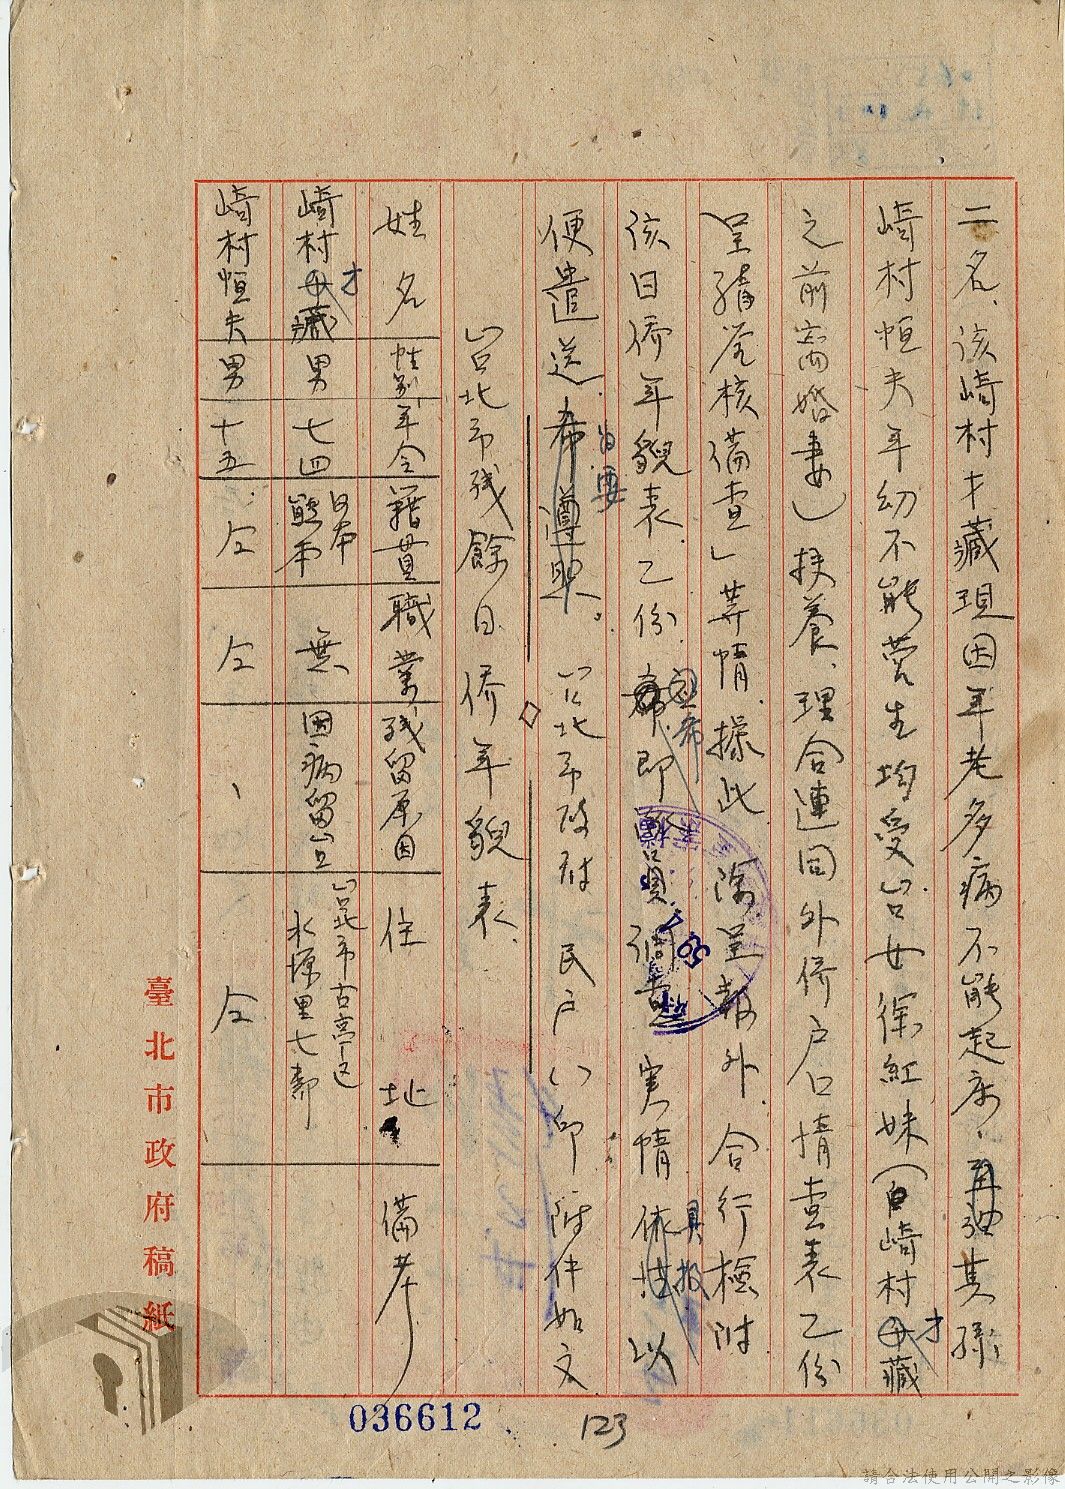 二名、該崎村才藏現因年老多病不能起床、再強其孫
崎村恒夫年幼不能營生均受台女徐紅妹（自崎村才藏
之前离婚妻）扶養、理合連同外侨户口情查表乙份
呈請鉴核備查」等情.據此 除呈報外.合行檢附
该日侨年貌表乙份 即 員調查 实情 具报 以
便遣送 為要 台北市政府 民户() 印 附件如文
台北市残餘日侨年貌表
姓名 性别 年令 籍貫 職業 残留原因 住址 備考
崎村才藏 男 七四 日本熊本 無 因病留台 台北市古亭区水源里七鄰
崎村恒夫 男 十五 仝 仝 、 仝
臺北市政府稿紙
036612
123
請合法使用公開之影像